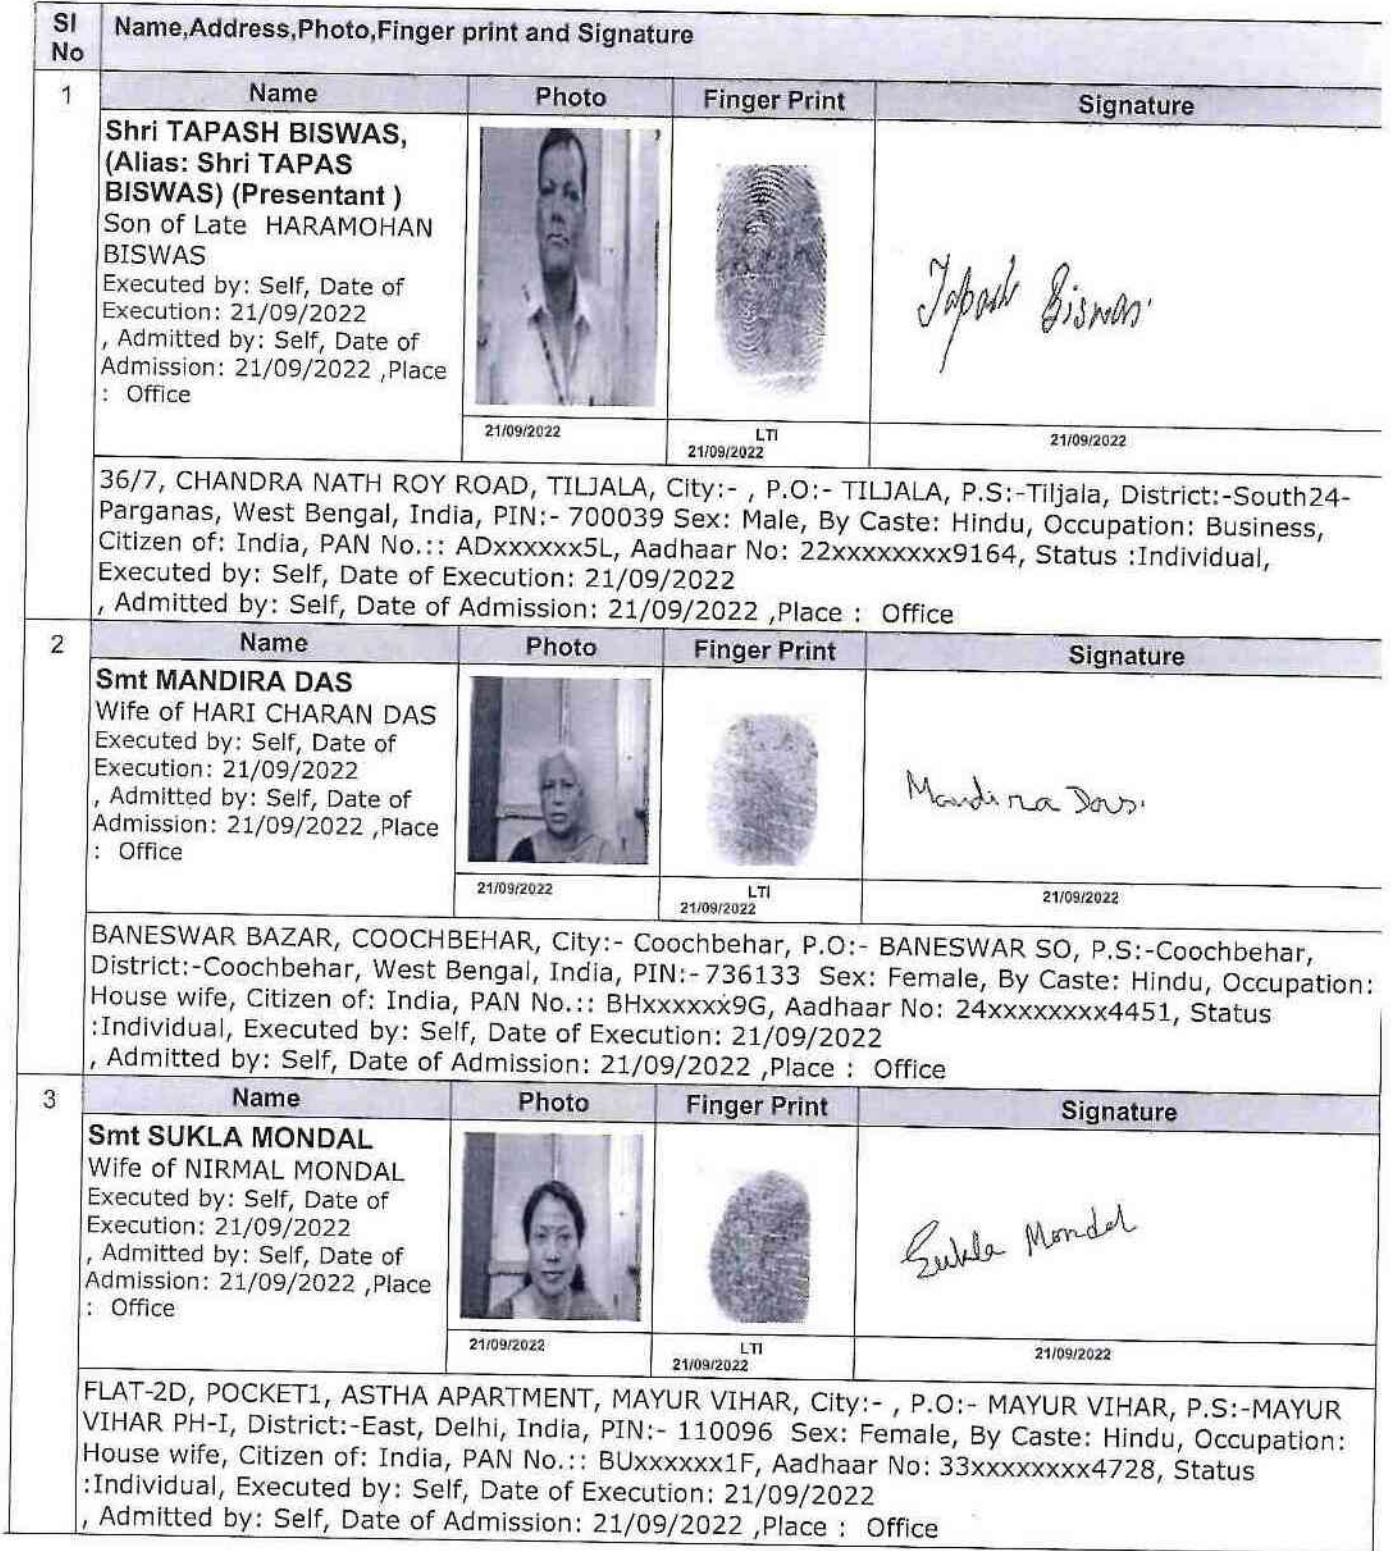 Sl No Name,Address,Photo,Finger print and Signature
1 Name Photo Finger Print Signature
Shri TAPASH BISWAS,
(Alias: Shri TAPAS
BISWAS) (Presentant )
Son of Late HARAMOHAN
BISWAS
Executed by: Self, Date of
Execution: 21/09/2022
, Admitted by: Self, Date of
Admission: 21/09/2022 ,Place
: Office
Tapash Biswas
21/09/2022 LTI 21/09/2022 21/09/2022
36/7, CHANDRA NATH ROY ROAD, TILJALA, City:- , P.O:- TILJALA, P.S:-Tiljala, District:-South24-
Parganas, West Bengal, India, PIN:- 700039 Sex: Male, By Caste: Hindu, Occupation: Business,
Citizen of: India, PAN No.:: ADxxxxxx5L, Aadhaar No: 22xxxxxxxx9164, Status :Individual,
Executed by: Self, Date of Execution: 21/09/2022
, Admitted by: Self, Date of Admission: 21/09/2022 ,Place : Office
2 Name Photo Finger Print Signature
Smt MANDIRA DAS
Wife of HARI CHARAN DAS
Executed by: Self, Date of
Execution: 21/09/2022
, Admitted by: Self, Date of
Admission: 21/09/2022 ,Place
: Office
Mandira Das.
21/09/2022 LTI 21/09/2022 21/09/2022
BANESWAR BAZAR, COOCHBEHAR, City:- Coochbehar, P.O:- BANESWAR SO, P.S:-Coochbehar,
District:-Coochbehar, West Bengal, India, PIN:- 736133 Sex: Female, By Caste: Hindu, Occupation:
House wife, Citizen of: India, PAN No.:: BHxxxxxx9G, Aadhaar No: 24xxxxxxxx4451, Status
:Individual, Executed by: Self, Date of Execution: 21/09/2022
, Admitted by: Self, Date of Admission: 21/09/2022 ,Place : Office
3 Name Photo Finger Print Signature
Smt SUKLA MONDAL
Wife of NIRMAL MONDAL
Executed by: Self, Date of
Execution: 21/09/2022
, Admitted by: Self, Date of
Admission: 21/09/2022 ,Place
: Office
Sukla Mondal
21/09/2022 LTI 21/09/2022 21/09/2022
FLAT-2D, POCKET1, ASTHA APARTMENT, MAYUR VIHAR, City:- , P.O:- MAYUR VIHAR, P.S:-MAYUR
VIHAR PH-I, District:-East, Delhi, India, PIN:- 110096 Sex: Female, By Caste: Hindu, Occupation:
House wife, Citizen of: India, PAN No.:: BUxxxxxx1F, Aadhaar No: 33xxxxxxxx4728, Status
:Individual, Executed by: Self, Date of Execution: 21/09/2022
, Admitted by: Self, Date of Admission: 21/09/2022 ,Place : Office